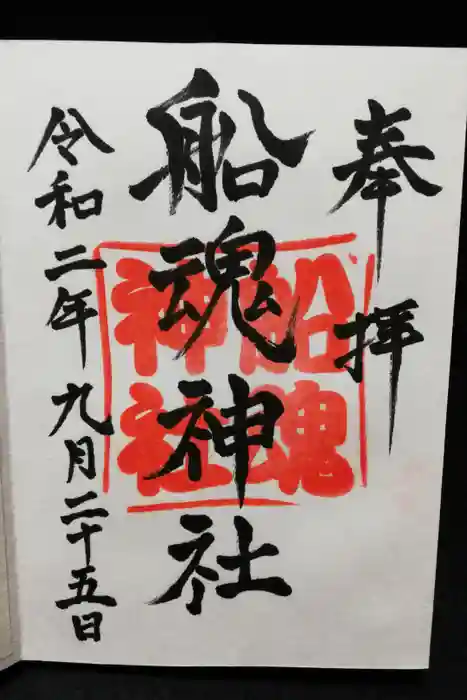 奉拝
船魂神社
船魂
神社
令和二年九月二十五日